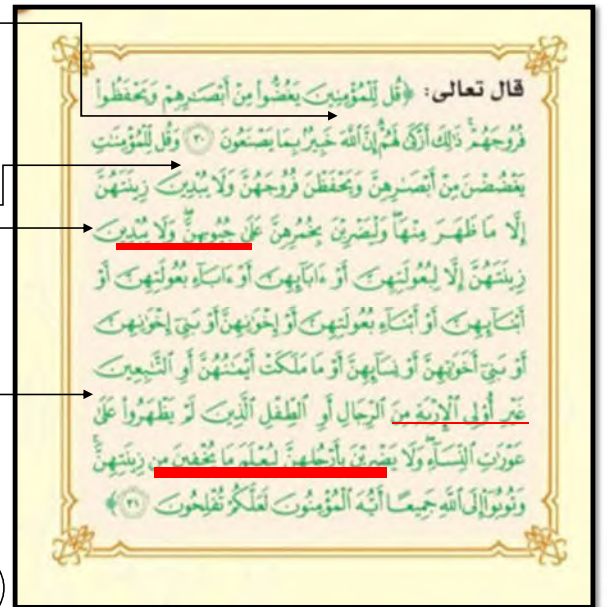 قال تعالى: ﴿قُل لِّلْمُؤْمِنِينَ يَغُضُّوا۟ مِنْ أَبْصَـٰرِهِمْ وَيَحْفَظُوا۟
فُرُوجَهُمْ ۚ ذَٰلِكَ أَزْكَىٰ لَهُمْ ۗ إِنَّ ٱللَّهَ خَبِيرٌۢ بِمَا يَصْنَعُونَ ۝٣٠ وَقُل لِّلْمُؤْمِنَـٰتِ
يَغْضُضْنَ مِنْ أَبْصَـٰرِهِنَّ وَيَحْفَظْنَ فُرُوجَهُنَّ وَلَا يُبْدِينَ زِينَتَهُنَّ
إِلَّا مَا ظَهَرَ مِنْهَا ۖ وَلْيَضْرِبْنَ بِخُمُرِهِنَّ عَلَىٰ جُيُوبِهِنَّ ۖ وَلَا يُبْدِينَ
زِينَتَهُنَّ إِلَّا لِبُعُولَتِهِنَّ أَوْ ءَابَآئِهِنَّ أَوْ ءَابَآءِ بُعُولَتِهِنَّ أَوْ
أَبْنَآئِهِنَّ أَوْ أَبْنَآءِ بُعُولَتِهِنَّ أَوْ إِخْوَٰنِهِنَّ أَوْ بَنِىٓ إِخْوَٰنِهِنَّ
أَوْ بَنِىٓ أَخَوَٰتِهِنَّ أَوْ نِسَآئِهِنَّ أَوْ مَا مَلَكَتْ أَيْمَـٰنُهُنَّ أَوِ ٱلتَّـٰبِعِينَ
غَيْرِ أُو۟لِى ٱلْإِرْبَةِ مِنَ ٱلرِّجَالِ أَوِ ٱلطِّفْلِ ٱلَّذِينَ لَمْ يَظْهَرُوا۟ عَلَىٰ
عَوْرَٰتِ ٱلنِّسَآءِ ۖ وَلَا يَضْرِبْنَ بِأَرْجُلِهِنَّ لِيُعْلَمَ مَا يُخْفِينَ مِن زِينَتِهِنَّ ۚ
وَتُوبُوٓا۟ إِلَى ٱللَّهِ جَمِيعًا أَيُّهَ ٱلْمُؤْمِنُونَ لَعَلَّكُمْ تُفْلِحُونَ ۝٣١﴾